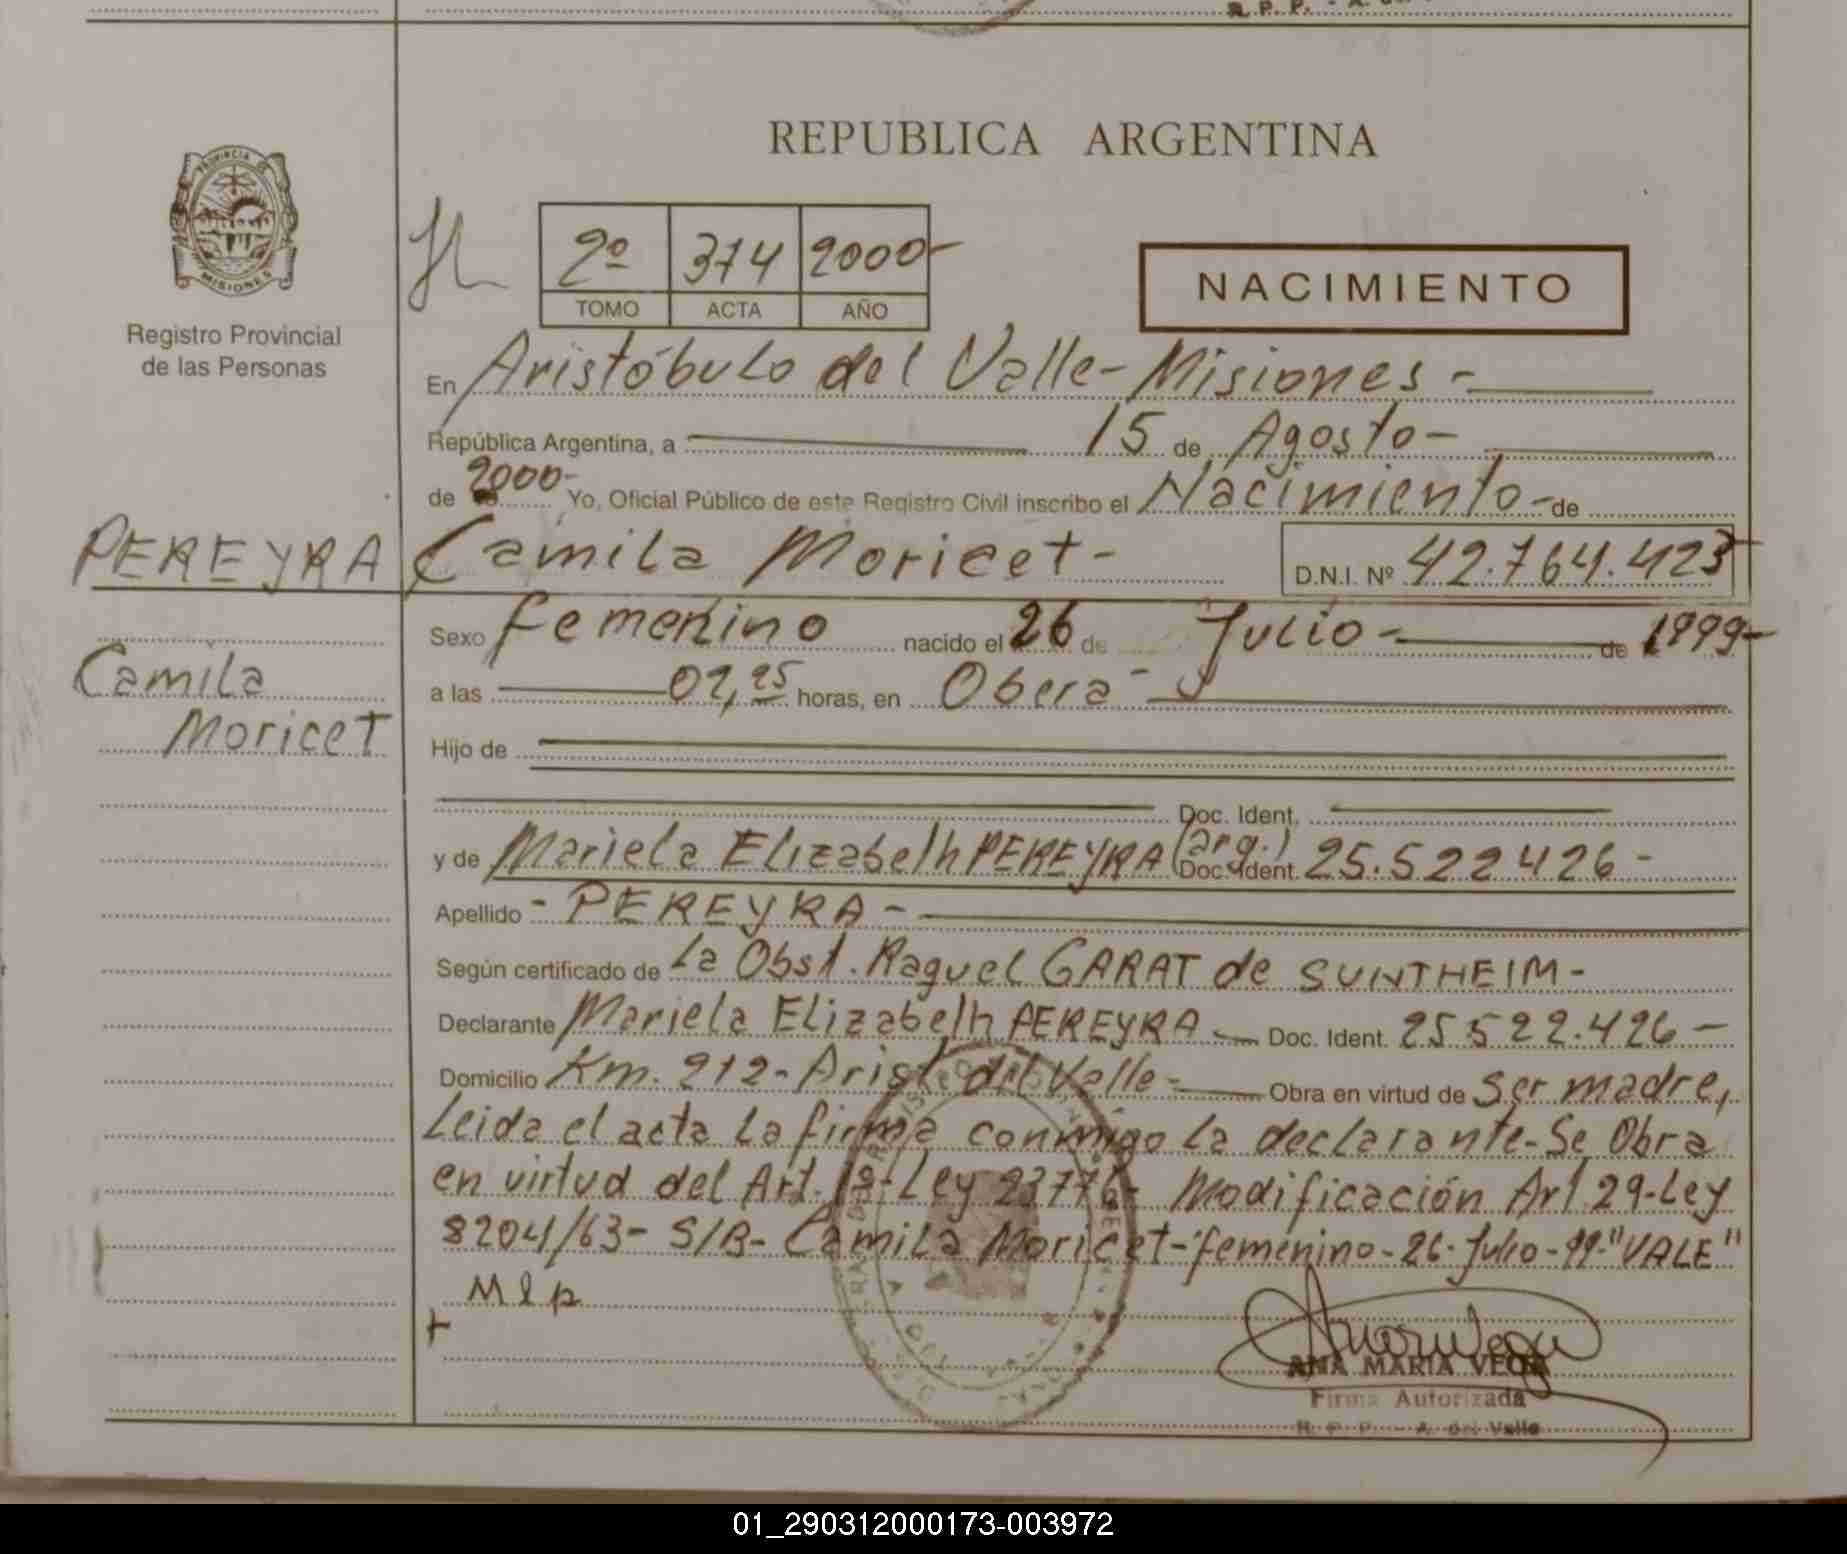 R. P. P. - A.
REPUBLICA ARGENTINA
PROVINCIA DE
MISIONES
Registro Provincial
de las Personas
2º 374 2000-
TOMO ACTA AÑO
NACIMIENTO
En Aristóbulo del Valle- Misiones -
República Argentina, a 15 de Agosto-
de 2000- Yo, Oficial Público de este Registro Civil inscribo el Nacimiento- de
PEREYRA Camila Moricet- D.N.I. Nº 42.764.423
Sexo femenino nacido el 26 de Julio- de 1999-
Camila
a las horas, en Obera-
Moricet
Hijo de
Doc. Ident.
y de Mariela Elizabeth PEREYRA (arg.) Doc. Ident. 25.522426-
Apellido - PEREYRA -
Según certificado de La Obst. Raquel GARAT de SUNTHEIM-
Declarante Mariela Elizabeth PEREYRA Doc. Ident. 25522.426-
Domicilio Km. 212- Arist. del Valle- Obra en virtud de ser madre,
Leida el acta la firma conmigo la declarante- Se Obra
en virtud del Art. 1º- Ley 23776- Modificación Art 29-Ley
8204/63- S/B- Camila Moricet- femenino- 26- Julio- 99- "VALE"
Mlp
ANA MARIA VEGA
Firma Autorizada
R. P. P. - A. del Valle
01_290312000173-003972